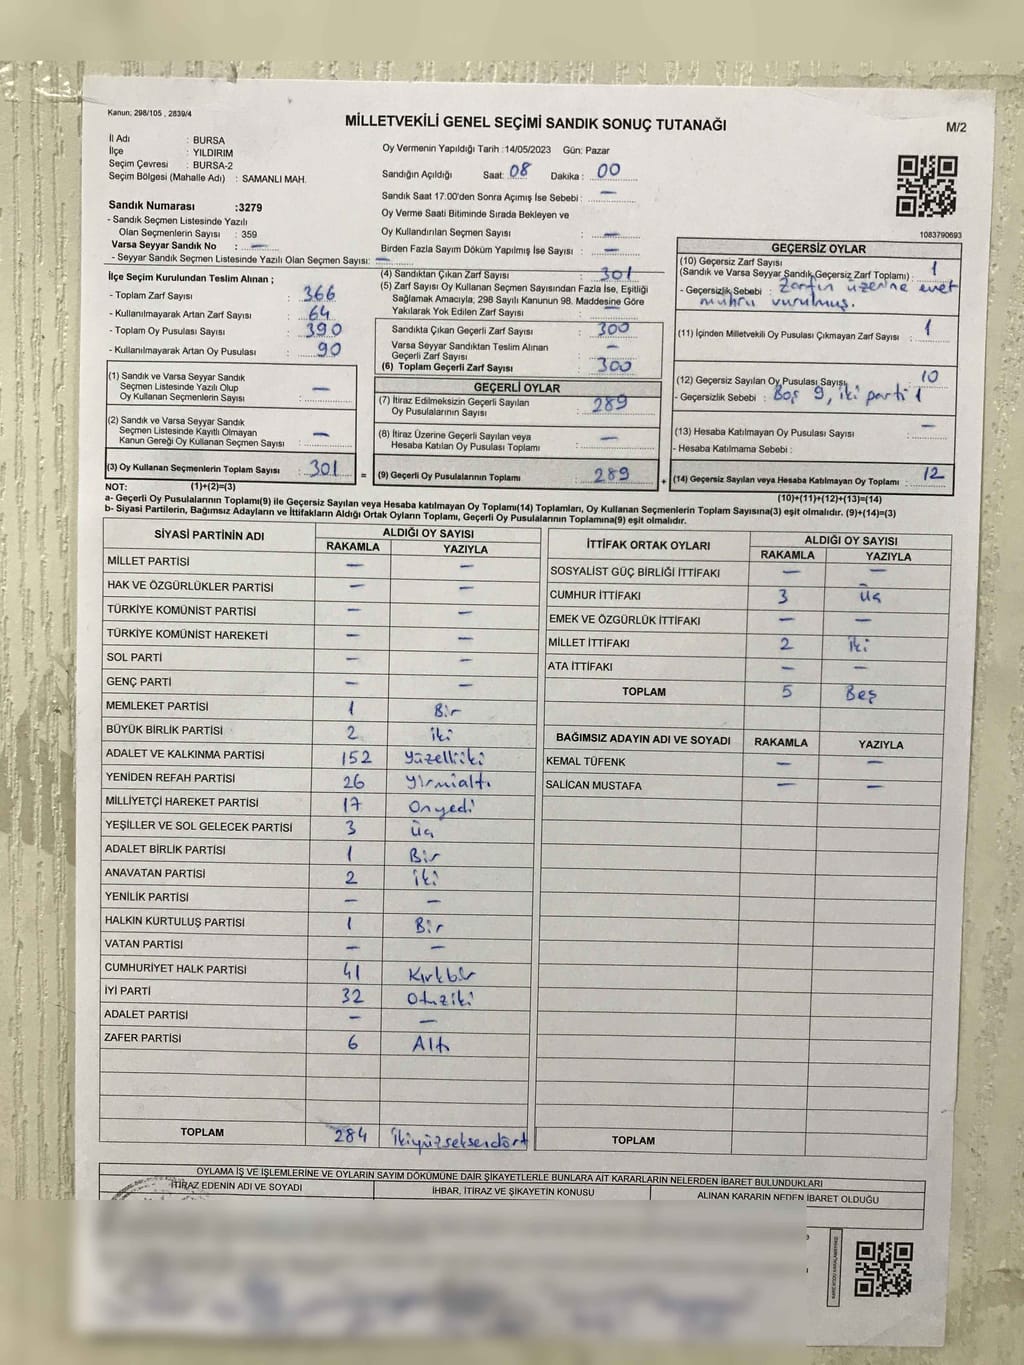 Kanun; 298/105 , 2839/4
MİLLETVEKİLİ GENEL SEÇİMİ SANDIK SONUÇ TUTANAĞI
M/2
İl Adı : BURSA
İlçe : YILDIRIM
Seçim Çevresi : BURSA-2
Seçim Bölgesi (Mahalle Adı) : SAMANLI MAH.
Sandık Numarası :3279
- Sandık Seçmen Listesinde Yazılı
Olan Seçmenlerin Sayısı : 359
Varsa Seyyar Sandık No : —
- Seyyar Sandık Seçmen Listesinde Yazılı Olan Seçmen Sayısı: —
Oy Vermenin Yapıldığı Tarih :14/05/2023 Gün: Pazar
Sandığın Açıldığı Saat: 08 Dakika : 00
Sandık Saat 17:00'den Sonra Açımış İse Sebebi : —
Oy Verme Saati Bitiminde Sırada Bekleyen ve
Oy Kullandırılan Seçmen Sayısı : —
Birden Fazla Sayım Döküm Yapılmış İse Sayısı : —
1083790693
İlçe Seçim Kurulundan Teslim Alınan ;
- Toplam Zarf Sayısı : 366
- Kullanılmayarak Artan Zarf Sayısı : 64
- Toplam Oy Pusulası Sayısı : 390
- Kullanılmayarak Artan Oy Pusulası : 90
(1) Sandık ve Varsa Seyyar Sandık
Seçmen Listesinde Yazılı Olup
Oy Kullanan Seçmenlerin Sayısı : —
(2) Sandık ve Varsa Seyyar Sandık
Seçmen Listesinde Kayıtlı Olmayan
Kanun Gereği Oy Kullanan Seçmen Sayısı : —
(3) Oy Kullanan Seçmenlerin Toplam Sayısı : 301
(4) Sandıktan Çıkan Zarf Sayısı : 301
(5) Zarf Sayısı Oy Kullanan Seçmen Sayısından Fazla İse, Eşitliği
Sağlamak Amacıyla, 298 Sayılı Kanunun 98. Maddesine Göre
Yakılarak Yok Edilen Zarf Sayısı : —
Sandıkta Çıkan Geçerli Zarf Sayısı : 300
Varsa Seyyar Sandıktan Teslim Alınan
Geçerli Zarf Sayısı : —
(6) Toplam Geçerli Zarf Sayısı : 300
GEÇERLİ OYLAR
(7) İtiraz Edilmeksizin Geçerli Sayılan
Oy Pusulalarının Sayısı : 289
(8) İtiraz Üzerine Geçerli Sayılan veya
Hesaba Katılan Oy Pusulaları Toplamı : —
= (9) Geçerli Oy Pusulalarının Toplamı : 289
GEÇERSİZ OYLAR
(10) Geçersiz Zarf Sayısı
(Sandık ve Varsa Seyyar Sandık Geçersiz Zarf Toplamı) : 1
- Geçersizlik Sebebi : Zarfın üzerine evet
mührü vurulmuş.
(11) İçinden Milletvekili Oy Pusulası Çıkmayan Zarf Sayısı : 1
(12) Geçersiz Sayılan Oy Pusulası Sayısı : 10
- Geçersizlik Sebebi : Boş 9, iki parti 1
(13) Hesaba Katılmayan Oy Pusulası Sayısı : —
- Hesaba Katılmama Sebebi :
+ (14) Geçersiz Sayılan veya Hesaba Katılmayan Oy Toplamı : 12
NOT: (1)+(2)=(3) (10)+(11)+(12)+(13)=(14)
a- Geçerli Oy Pusulalarının Toplamı(9) ile Geçersiz Sayılan veya Hesaba katılmayan Oy Toplamı(14) Toplamları, Oy Kullanan Seçmenlerin Toplam Sayısına(3) eşit olmalıdır. (9)+(14)=(3)
b- Siyasi Partilerin, Bağımsız Adayların ve İttifakların Aldığı Ortak Oyların Toplamı, Geçerli Oy Pusulalarının Toplamına(9) eşit olmalıdır.
SİYASİ PARTİNİN ADI ALDIĞI OY SAYISI
RAKAMLA YAZIYLA
MİLLET PARTİSİ — —
HAK VE ÖZGÜRLÜKLER PARTİSİ — —
TÜRKİYE KOMÜNİST PARTİSİ — —
TÜRKİYE KOMÜNİST HAREKETİ — —
SOL PARTİ — —
GENÇ PARTİ — —
MEMLEKET PARTİSİ 1 Bir
BÜYÜK BİRLİK PARTİSİ 2 iki
ADALET VE KALKINMA PARTİSİ 152 Yüzelliiki
YENİDEN REFAH PARTİSİ 26 Yirmialtı
MİLLİYETÇİ HAREKET PARTİSİ 17 Onyedi
YEŞİLLER VE SOL GELECEK PARTİSİ 3 Üç
ADALET BİRLİK PARTİSİ 1 Bir
ANAVATAN PARTİSİ 2 İki
YENİLİK PARTİSİ — —
HALKIN KURTULUŞ PARTİSİ 1 Bir
VATAN PARTİSİ — —
CUMHURİYET HALK PARTİSİ 41 Kırkbir
İYİ PARTİ 32 Otuziki
ADALET PARTİSİ — —
ZAFER PARTİSİ 6 Altı
TOPLAM 284 İkiyüzseksendört
İTTİFAK ORTAK OYLARI ALDIĞI OY SAYISI
RAKAMLA YAZIYLA
SOSYALİST GÜÇ BİRLİĞİ İTTİFAKI — —
CUMHUR İTTİFAKI 3 Üç
EMEK VE ÖZGÜRLÜK İTTİFAKI — —
MİLLET İTTİFAKI 2 İki
ATA İTTİFAKI — —
TOPLAM 5 Beş
BAĞIMSIZ ADAYIN ADI VE SOYADI RAKAMLA YAZIYLA
KEMAL TÜFENK — —
SALİCAN MUSTAFA — —
TOPLAM
OYLAMA İŞ VE İŞLEMLERİNE VE OYLARIN SAYIM DÖKÜMÜNE DAİR ŞİKAYETLERLE BUNLARA AİT KARARLARIN NELERDEN İBARET BULUNDUKLARI
İTİRAZ EDENİN ADI VE SOYADI İHBAR, İTİRAZ VE ŞİKAYETİN KONUSU ALINAN KARARIN NEDEN İBARET OLDUĞU